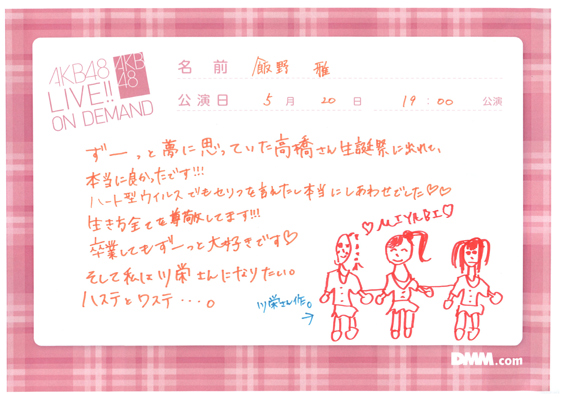 AKB48
LIVE!!
ON DEMAND
AKB
48
名 前 飯野 雅
公演日 5 月 20 日 19 : 00 公演
ずーっと夢に思っていた高橋さん生誕祭に出れて、
本当に良かったです!!!
ハート型ウイルスでもセリフを言えたし本当にしあわせでした♡♡
生き方全てを尊敬してます!!!
卒業してもずーっと大好きです♡
そして私は川栄さんになりたい。
ハステとワステ・・・。
♡MIYABI♡
川栄さん作。
→
DMM.com